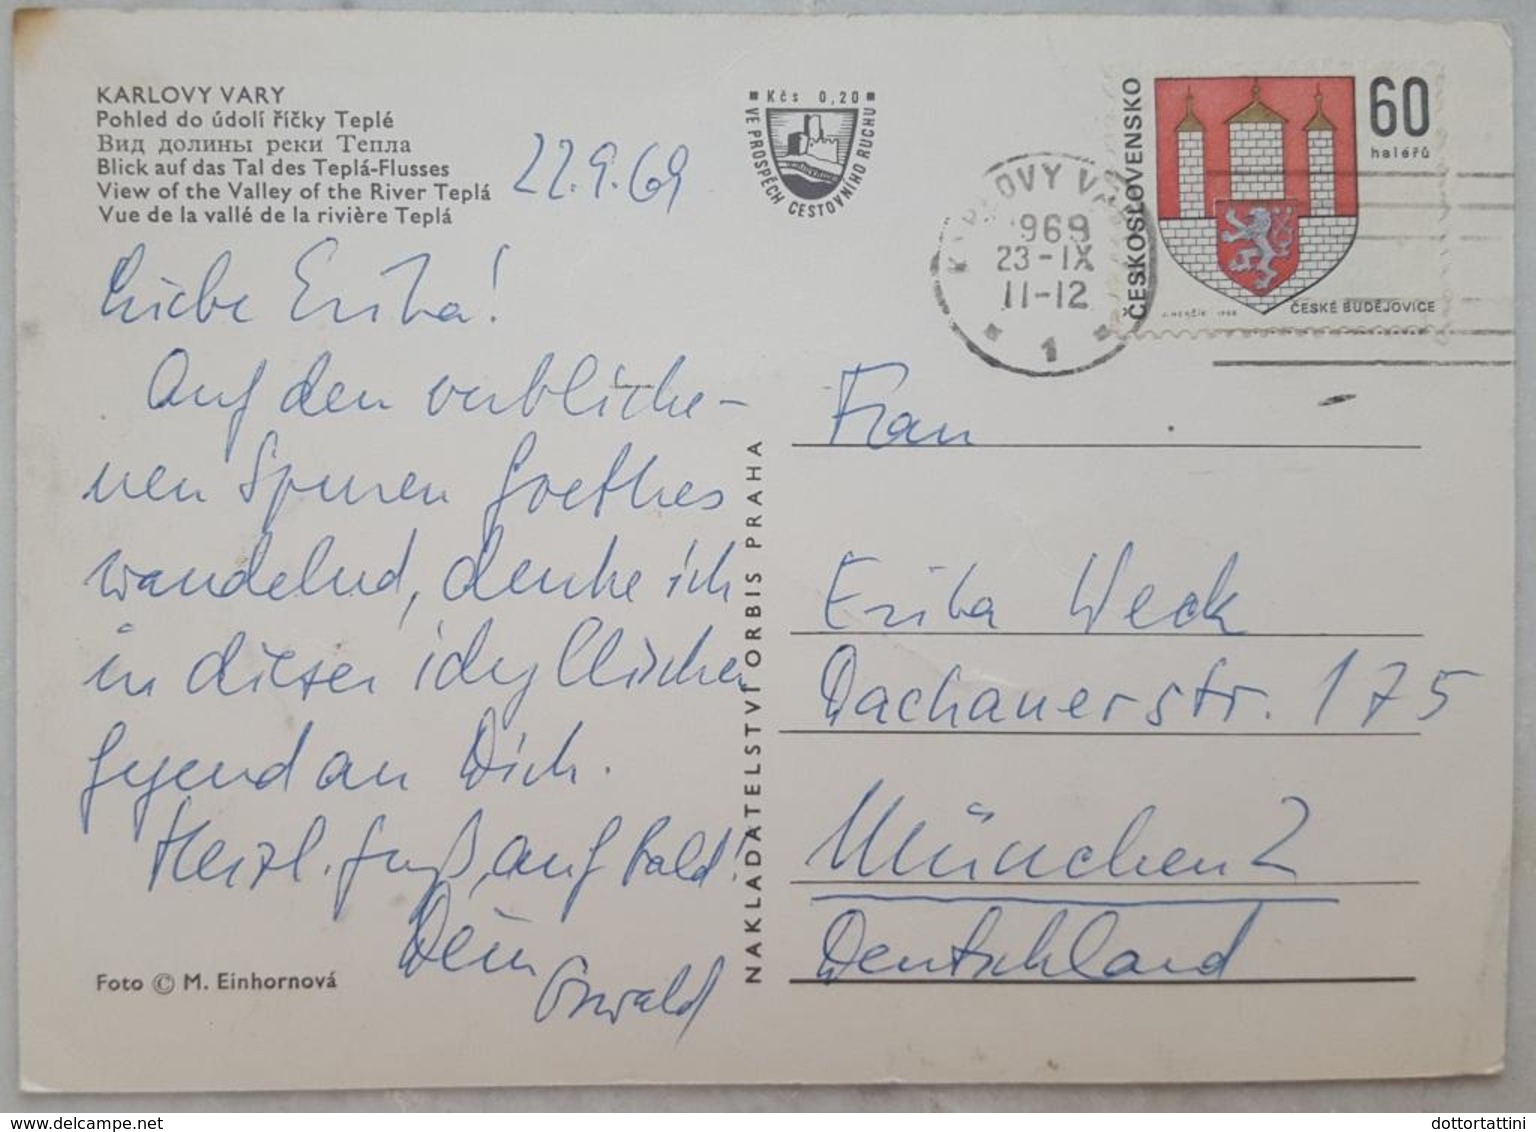 KARLOVY VARY
Pohled do údolí říčky Teplé
Вид долины реки Тепла
Blick auf das Tal des Teplá-Flusses
View of the Valley of the River Teplá
Vue de la vallé de la rivière Teplá
22.9.69
Liebe Erika!
Auf den verbliche-
nen Spuren Goethes
wandelnd, denke ich
in dieser idyllischen
Gegend an Dich.
Herzl. Gruß, auf bald!
Dein
Oswald
Foto © M. Einhornová
NAKLADATELSTVÍ ORBIS PRAHA
Kčs 0,20
VE PROSPĚCH CESTOVNÍHO RUCHU
KARLOVY VARY
1969
23-IX
11-12
1
ČESKOSLOVENSKO
60
haléřů
J. HERČÍK 1968
ČESKÉ BUDĚJOVICE
Frau
Erika Weck
Dachauerstr. 175
München 2
Deutschland
www.delcampe.net
dottortattini